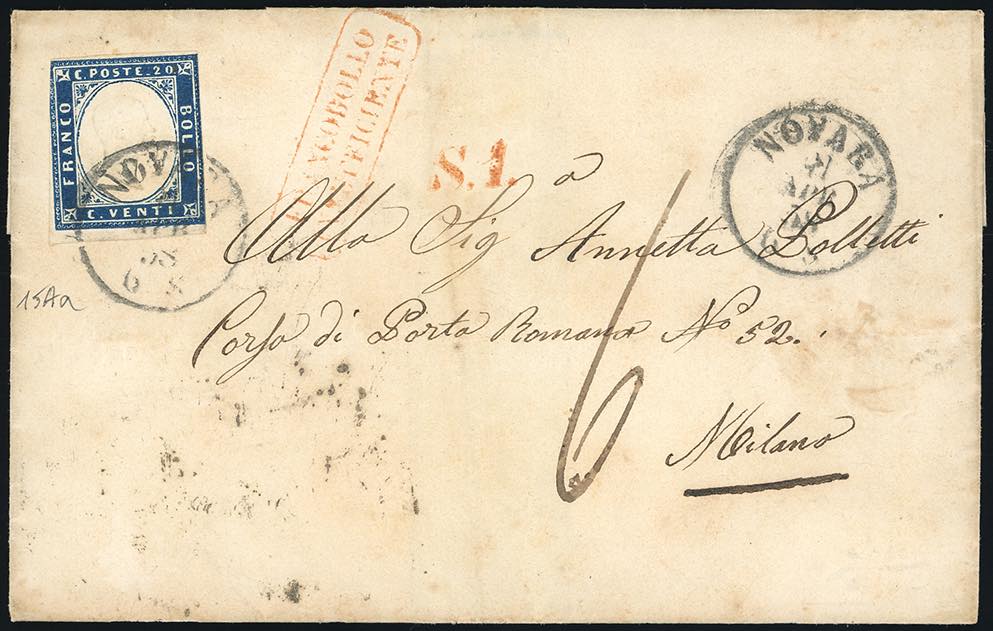 C. POSTE. 20
FRANCO
BOLLO
C. VENTI
NOVARA
APR
58
6 S
FRANCOBOLLO
INSUFFICIENTE
S.1.
NOVARA
APR
Alla Sigª Annetta Polletti
Corso di Porta Romana Nº 52.
6
Milano
15Aa